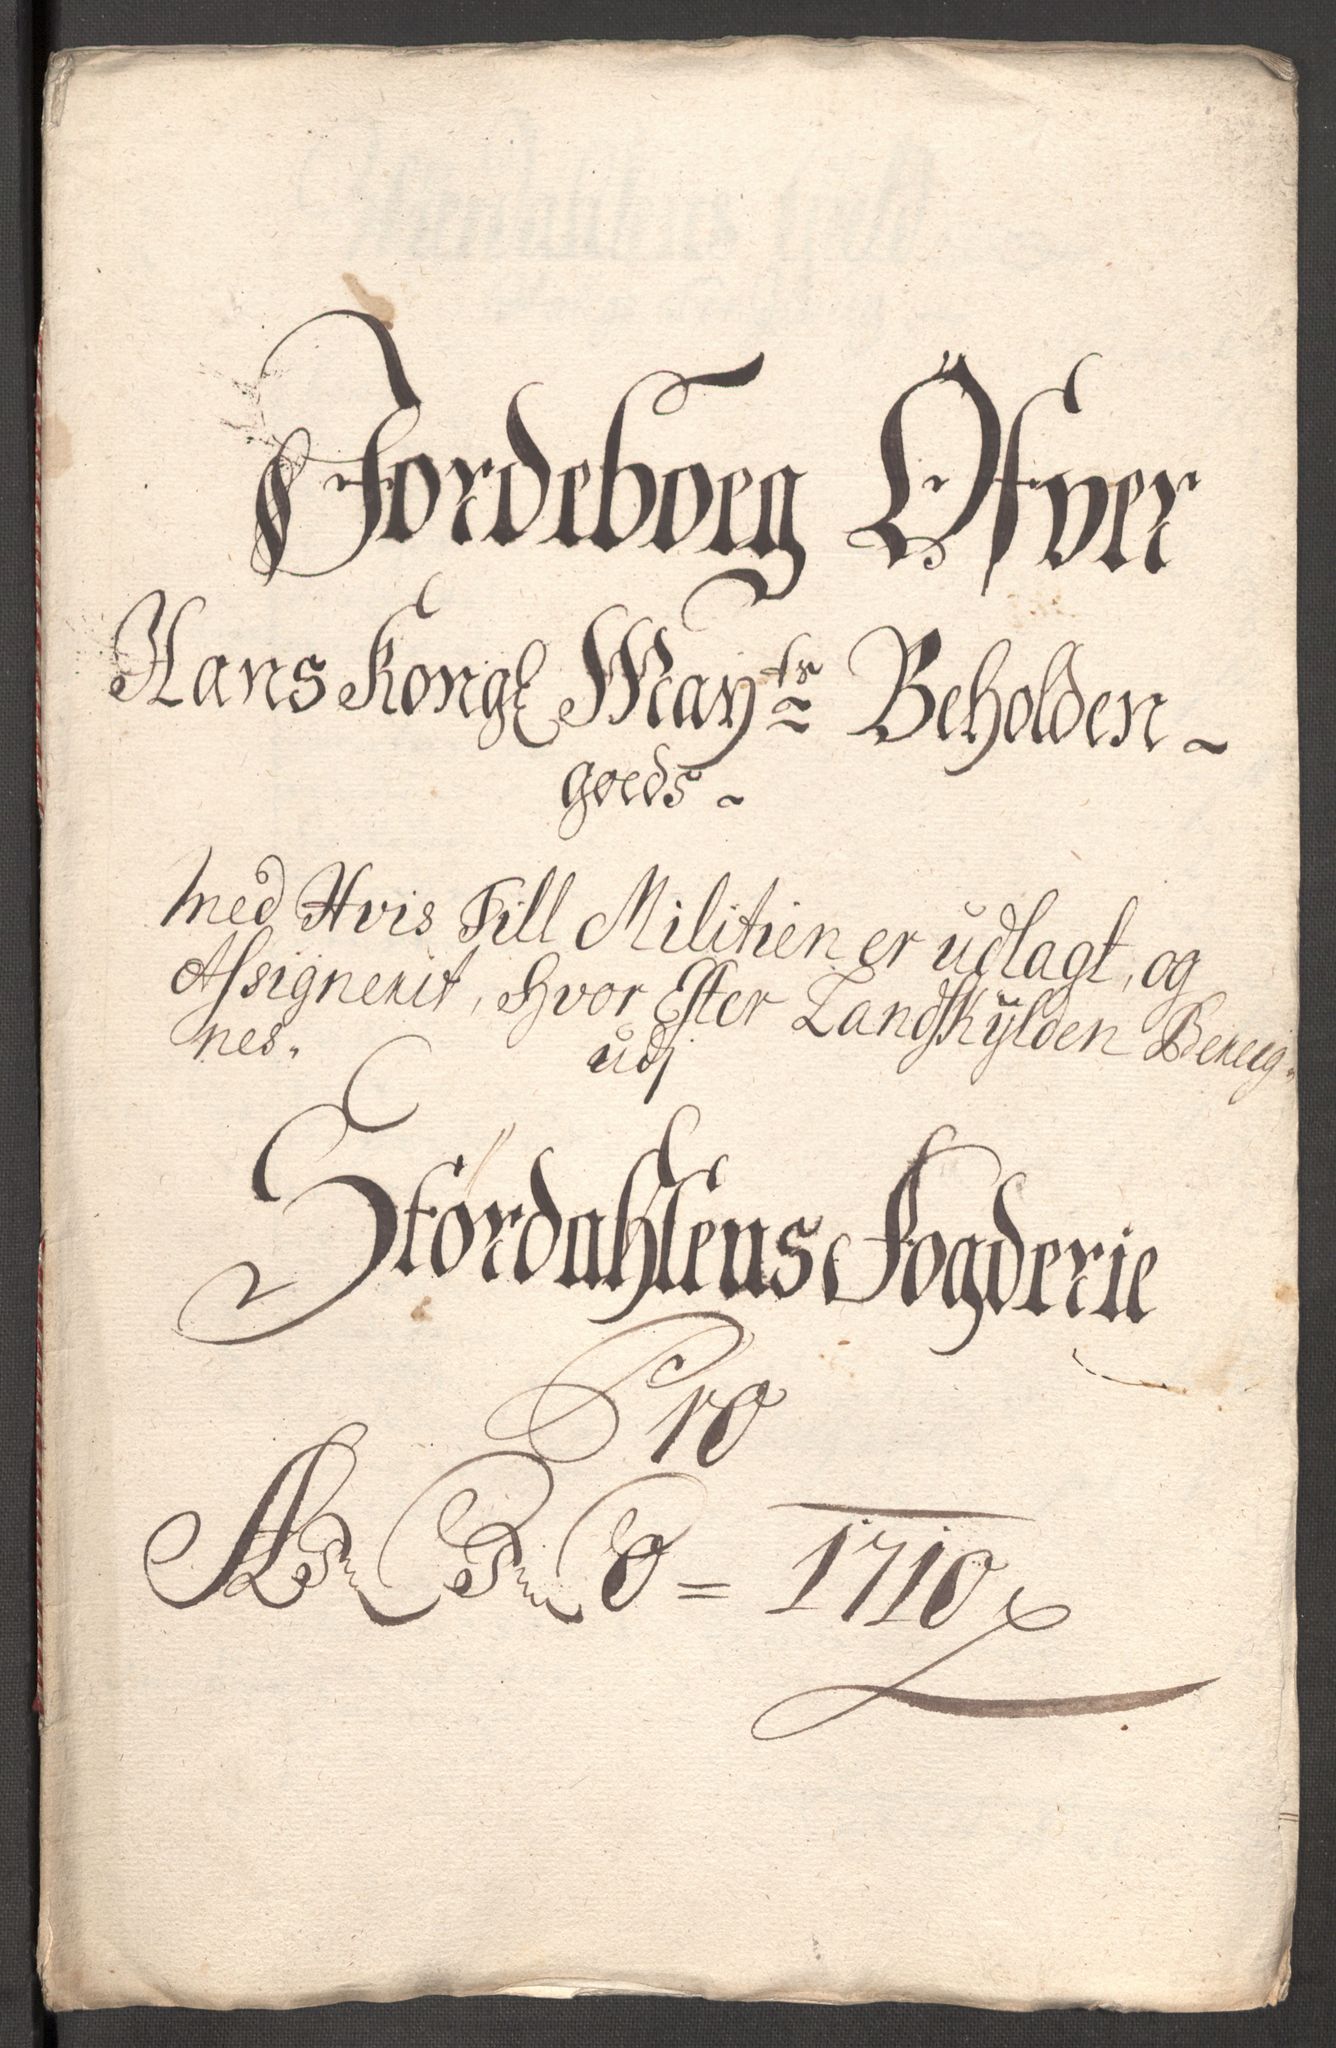 Jordeboeg Öfver
Hans Kongl May^ts Beholden
goeds
med Hvis Till Militien er udlagt, og
Assignerit, hvor Efter Landskÿlden Bereig-
nes.
udj
Stördahlens Fogderie
Pro
Anno = 1710